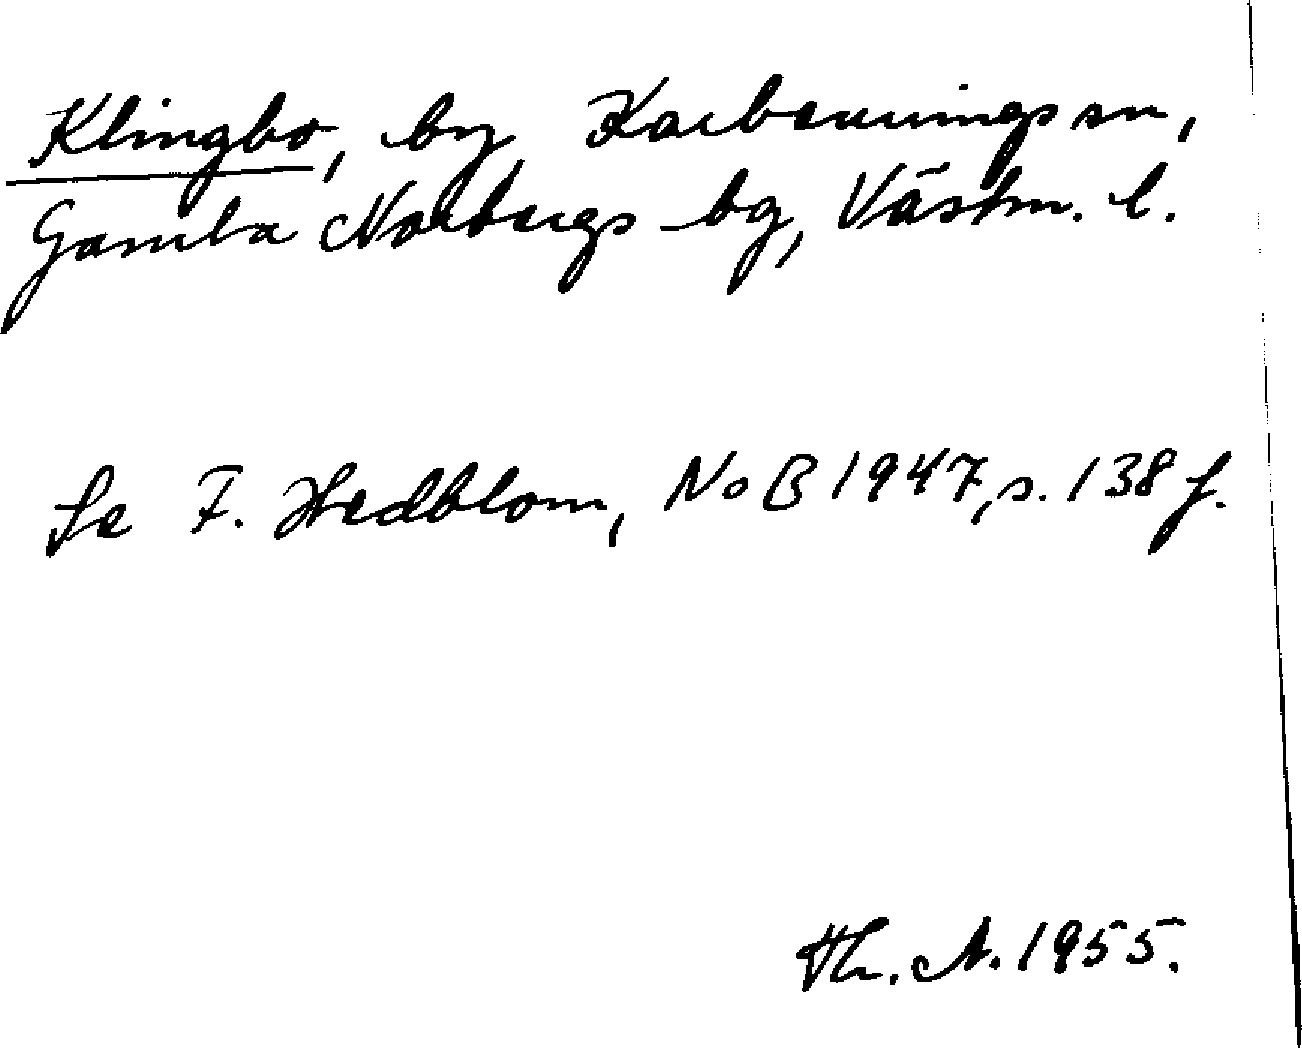 Klingbo, by, Karbenningssn,
Gamla Norbergs bg, Västm. l.
Se F. Hedblom, NoB 1947, s. 138 f.
Th. A. 1955.